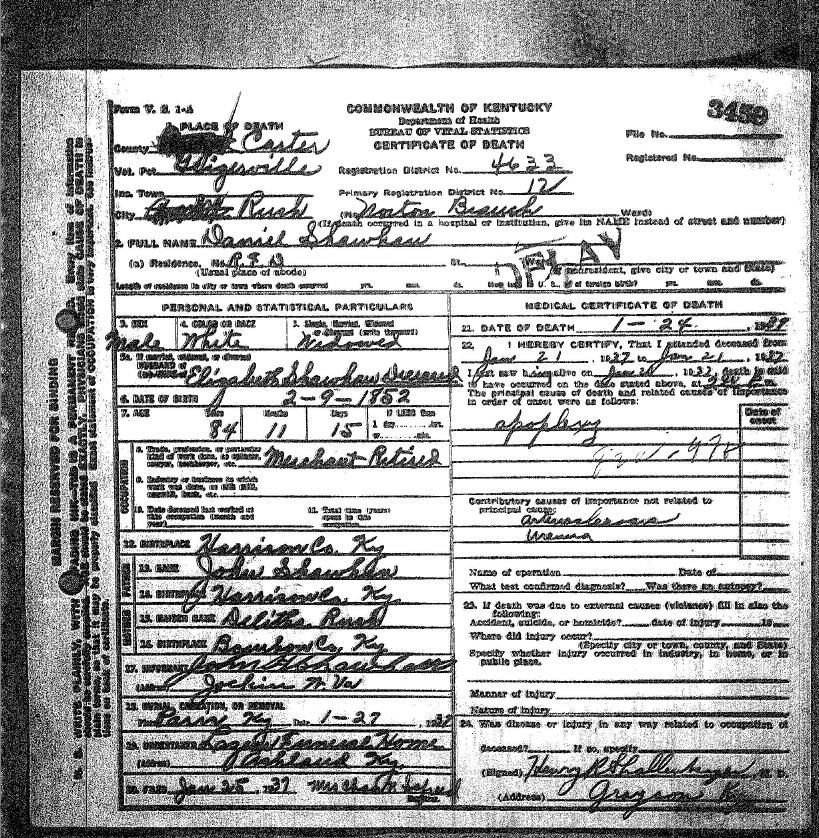 Form V. S. 1-A
COMMONWEALTH OF KENTUCKY
Department of Health
BUREAU OF VITAL STATISTICS
CERTIFICATE OF DEATH
3459
File No.
Registered No.
1. PLACE OF DEATH
County Carter
Vot. Pct.
Registration District No. 4633
Inc. Town
Primary Registration District No.
City Rush
(No. Norton Branch Ward)
(If death occurred in a hospital or institution, give its NAME instead of street and number)
2. FULL NAME Daniel Shawhan
(a) Residence. No. R. F. D St.
(Usual place of abode)
(If nonresident, give city or town and State)
Length of residence in city or town where death occurred yrs. mos. ds. How long in U. S., if of foreign birth? yrs. mos. ds.
PERSONAL AND STATISTICAL PARTICULARS
3. SEX 4. COLOR OR RACE 5. Single, Married, Widowed or Divorced (write the word)
Male White Widowed
5a. If married, widowed, or divorced
HUSBAND of
(or) WIFE of Elizabeth Shawhan Deceased
6. DATE OF BIRTH 2-9-1852
7. AGE Years Months Days If LESS than
84 11 15 1 day
8. Trade, profession, or particular kind of work done, as spinner, sawyer, bookkeeper, etc. Merchant Retired
9. Industry or business in which work was done, as silk mill, sawmill, bank, etc.
10. Date deceased last worked at this occupation (month and year)
11. Total time (years) spent in this occupation
OCCUPATION
12. BIRTHPLACE Harrison Co. Ky
FATHER
13. NAME John Shawhan
14. BIRTHPLACE Harrison Co. Ky.
MOTHER
15. MAIDEN NAME Delitha Rush
16. BIRTHPLACE Bourbon Co. Ky
17. INFORMANT John Shawhan
(Address) W. Va
18. BURIAL, CREMATION, OR REMOVAL
Place Paris Ky Date 1-27, 1937
19. UNDERTAKER Funeral Home
(Address) Ashland Ky.
20. FILED Jan 25 1937 Mrs Chas
Registrar.
MEDICAL CERTIFICATE OF DEATH
21. DATE OF DEATH 1-24, 1937
22. I HEREBY CERTIFY, That I attended deceased from
Jan 21, 1937 to Jan 21, 1937
I last saw him alive on Jan, 1937, death is said
to have occurred on the date stated above, at m.
The principal cause of death and related causes of importance
in order of onset were as follows:
Date of onset
apoplexy
Contributory causes of importance not related to
principal cause:
arteriosclerosis
uremia
Name of operation Date of
What test confirmed diagnosis? Was there an autopsy?
23. If death was due to external causes (violence) fill in also the
following:
Accident, suicide, or homicide? date of injury 19
Where did injury occur?
(Specify city or town, county, and State)
Specify whether injury occurred in industry, in home, or in
public place.
Manner of injury
Nature of injury
24. Was disease or injury in any way related to occupation of
deceased? If so, specify
(Signed) Henry R Shallenberger M. D.
(Address) Grayson Ky
MARGIN RESERVED FOR BINDING